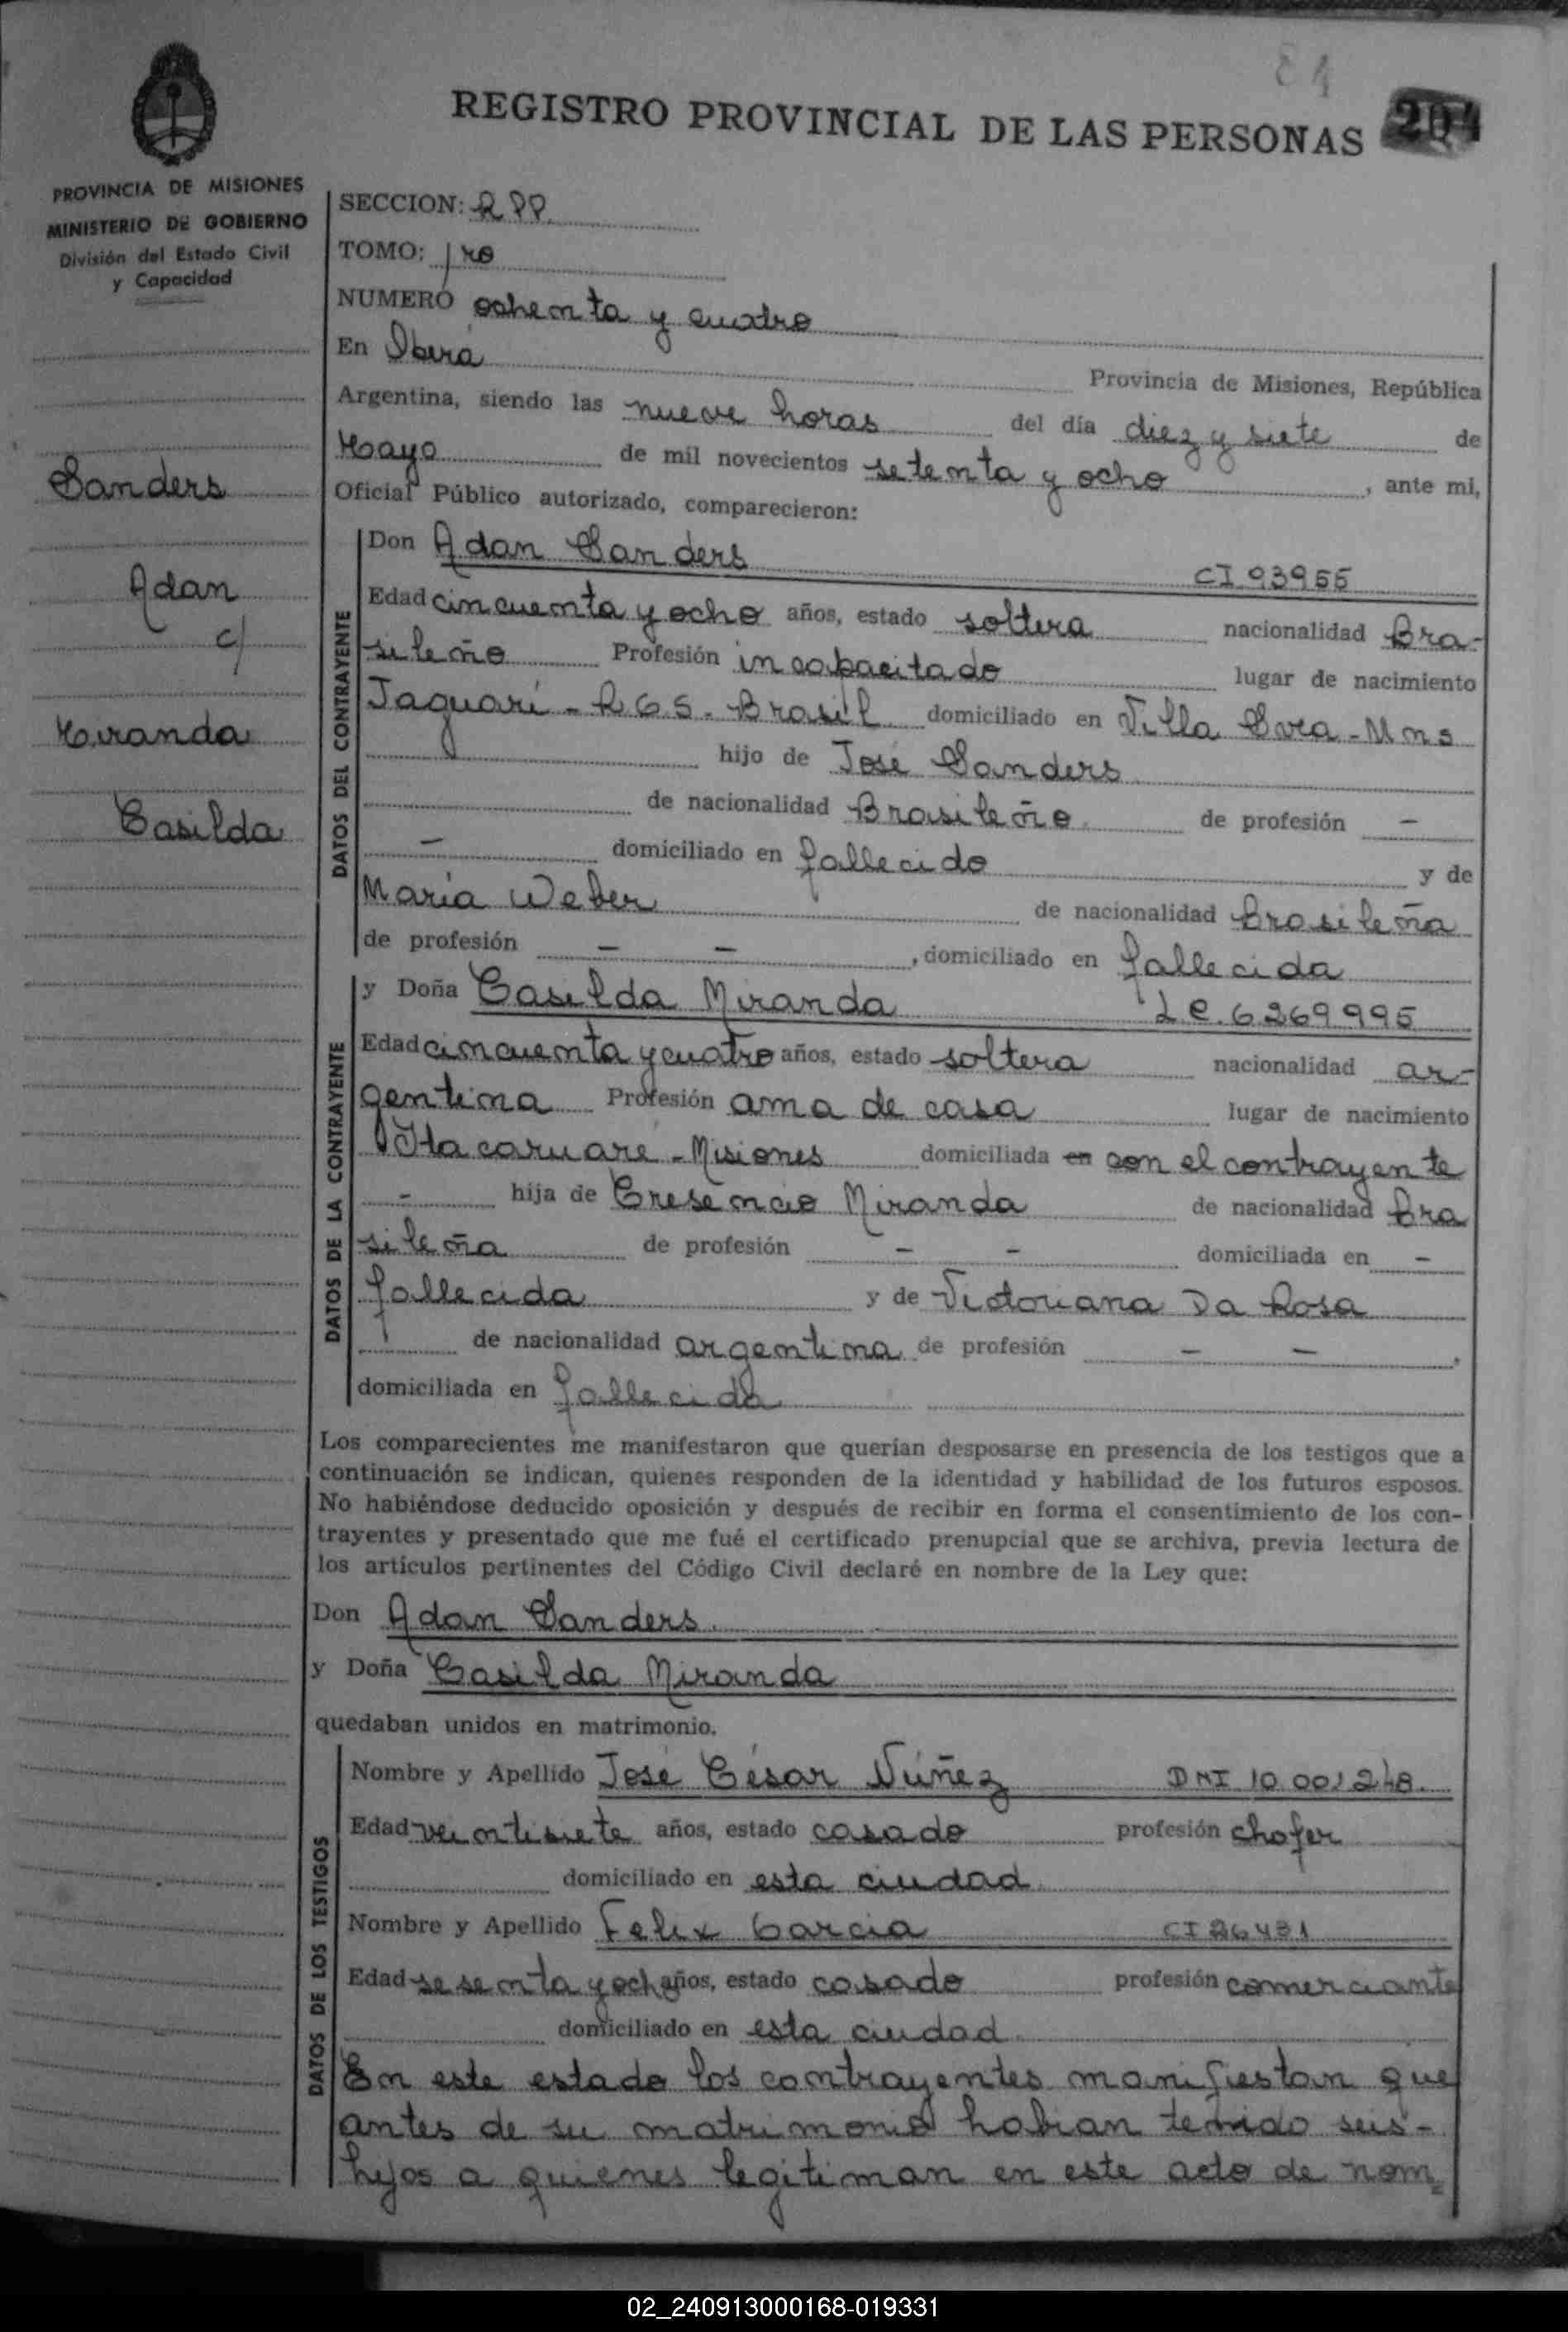 REGISTRO PROVINCIAL DE LAS PERSONAS 204
PROVINCIA DE MISIONES
MINISTERIO DE GOBIERNO
División del Estado Civil
y Capacidad
Sanders
Adan
c/
Miranda
Casilda
SECCION: RPP
TOMO: 1ro
NUMERO ochenta y cuatro
En Oberá Provincia de Misiones, República
Argentina, siendo las nueve horas del día diez y siete de
Mayo de mil novecientos setenta y ocho, ante mi,
Oficial Público autorizado, comparecieron:
DATOS DEL CONTRAYENTE
Don Adan Sanders CI 93955
Edad cincuenta y ocho años, estado soltera nacionalidad Bra-
sileño Profesión incapacitado lugar de nacimiento
Jaguarí - RGS - Brasil domiciliado en Villa Svea - Mns
hijo de José Sanders
de nacionalidad Brasileño de profesión -
- domiciliado en fallecido y de
María Weber de nacionalidad brasileña
de profesión - - , domiciliado en fallecida
DATOS DE LA CONTRAYENTE
y Doña Casilda Miranda LC. 6269995
Edad cincuenta y cuatro años, estado soltera nacionalidad ar-
gentina Profesión ama de casa lugar de nacimiento
Itacaruaré - Misiones domiciliada en con el contrayente
- hija de Cresencio Miranda de nacionalidad bra
sileña de profesión - - domiciliada en -
fallecida y de Victoriana Da Rosa
de nacionalidad argentina de profesión - - ,
domiciliada en fallecida
Los comparecientes me manifestaron que querían desposarse en presencia de los testigos que a
continuación se indican, quienes responden de la identidad y habilidad de los futuros esposos.
No habiéndose deducido oposición y después de recibir en forma el consentimiento de los con-
trayentes y presentado que me fué el certificado prenupcial que se archiva, previa lectura de
los artículos pertinentes del Código Civil declaré en nombre de la Ley que:
Don Adan Sanders
y Doña Casilda Miranda
quedaban unidos en matrimonio.
DATOS DE LOS TESTIGOS
Nombre y Apellido José César Núñez DNI 10.001.248.
Edad veintisiete años, estado casado profesión chofer
domiciliado en esta ciudad
Nombre y Apellido Felix Garcia CI 26431
Edad sesenta y ocho años, estado casado profesión comerciante
domiciliado en esta ciudad
En este estado los contrayentes manifiestan que
antes de su matrimonio habian tenido seis -
hijos a quienes legitiman en este acto de nom
02_240913000168-019331